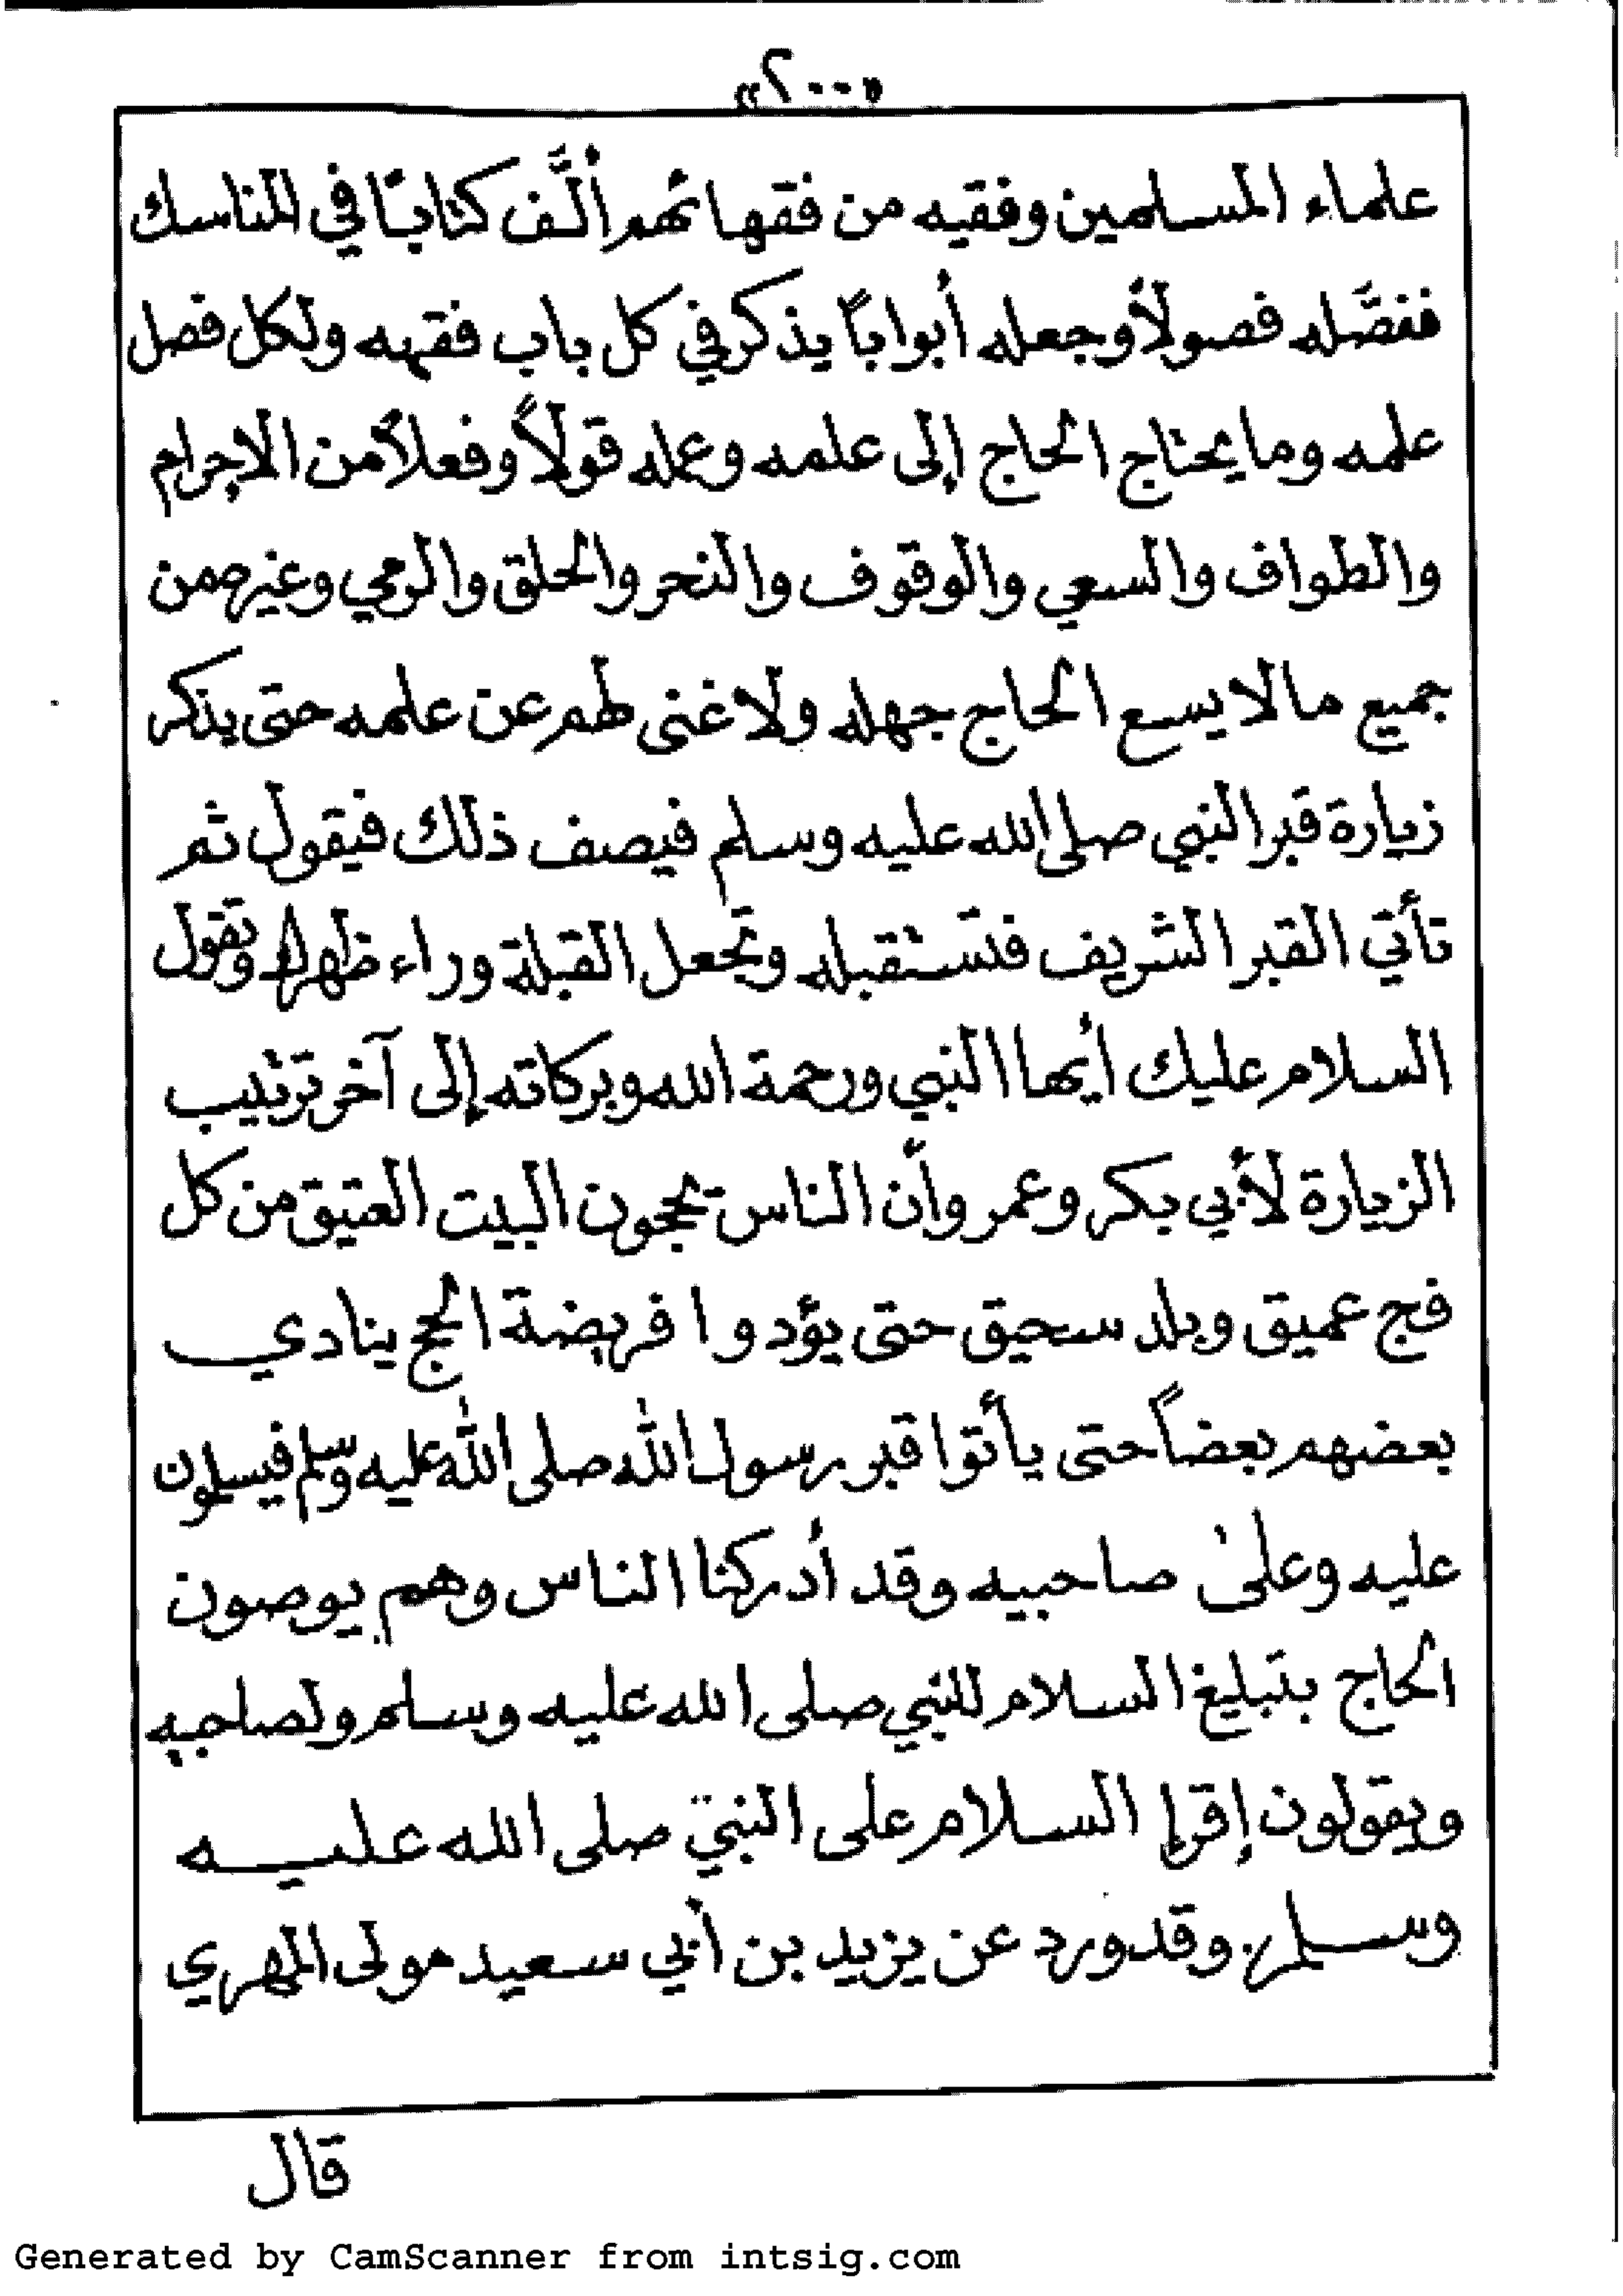 «٢٠٠»
علماء المسلمين وفقيه من فقهائهم ألَّف كتابًا في المناسك
ففصَّله فصولاً وجعله أبوابًا يذكر في كل باب فقهه ولكل فصل
علمه وما يحتاج الحاج إلى علمه وعمله قولاً وفعلاً من الاحرام
والطواف والسعي والوقوف والنحر والحلق والرمي وغيرهمن
جميع مالا يسع الحاج جهله ولا غنى لهم عن علمه حتى يذكر
زيارة قبر النبي صلى الله عليه وسلم فيصف ذلك فيقول ثم
تأتي القبر الشريف فتستقبله وتجعل القبلة وراء ظهرك وتقول
السلام عليك أيها النبي ورحمة الله وبركاته إلى آخر ترتيب
الزيارة لأبي بكر وعمر وأن الناس يحجون البيت العتيق من كل
فج عميق وبلد سحيق حتى يؤدوا فريضة الحج ينادي
بعضهم بعضاً حتى يأتوا قبر رسول الله صلى الله عليه وسلم فيسلمون
عليه وعلى صاحبيه وقد أدركنا الناس وهم يوصون
الحاج بتبليغ السلام للنبي صلى الله عليه وسلم ولصاحبيه
ويقولون إقرإ السلام على النبي صلى الله عليه
وسلم. وقد ورد عن يزيد بن أبي سعيد مولى المهري
قال
Generated by CamScanner from intsig.com